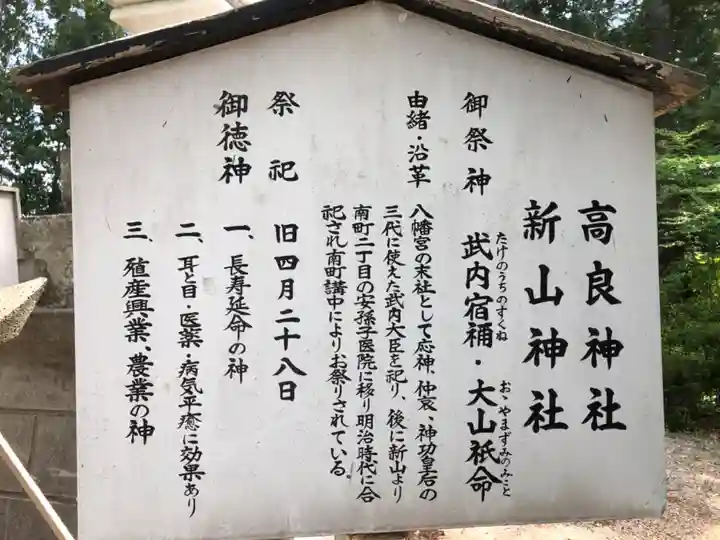 高良神社
新山神社
御祭神 武内宿禰・大山祇命
たけのうちのすくね
おゝやまずみのみこと
由緒・沿革 八幡宮の末社として応神、仲哀、神功皇后の
三代に使えた武内大臣を祀り、後に新山より
南町二丁目の安孫子医院に移り明治時代に合
祀され南町講中によりお祭りされている。
祭祀 旧四月二十八日
御徳神 一、長寿延命の神
二、耳と目・医薬・病気平癒に効果あり
三、殖産興業、農業の神